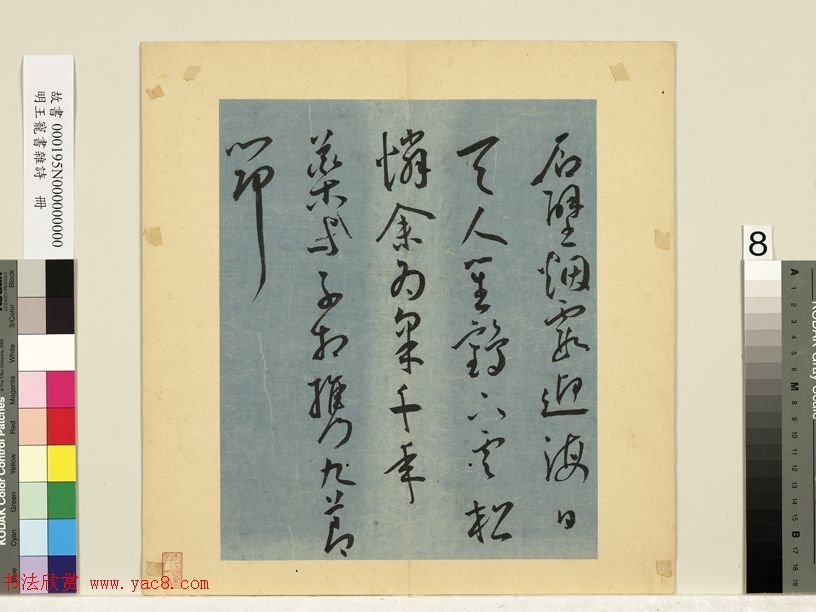 石壁烟霞迎海日
天人笙鶴下雲松
憐余為采千年
藥與子相攜九節
筇
故書 000195N000000000
明王寵書雜詩 冊
8
KODAK Color Control Patches
Blue
Cyan
Green
Yellow
Red
Magenta
White
3/Color
Black
A
1
2
3
4
5
6
M
8
9
10
11
12
13
14
15
B
17
18
19
书法欣赏 www.yac8.com